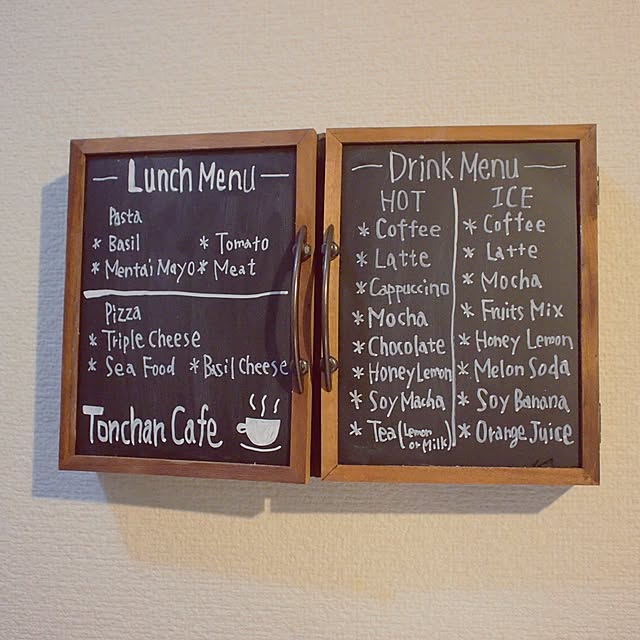 Lunch Menu
Pasta
* Basil * Tomato
* Mentai Mayo * Meat
Pizza
* Triple Cheese
* Sea Food * Basil Cheese
Tonchan Cafe
Drink Menu
HOT
* Coffee
* Latte
* Cappuccino
* Mocha
* Chocolate
* Honey Lemon
* Soy Macha
* Tea (Lemon
or Milk)
ICE
* Coffee
* Latte
* Mocha
* Fruits Mix
* Honey Lemon
* Melon Soda
* Soy Banana
* Orange Juice